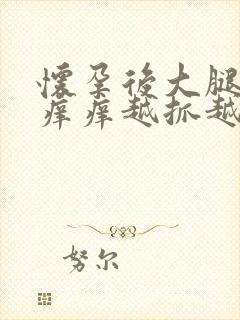 懷孕後大腿
痒痒越抓越
努尔